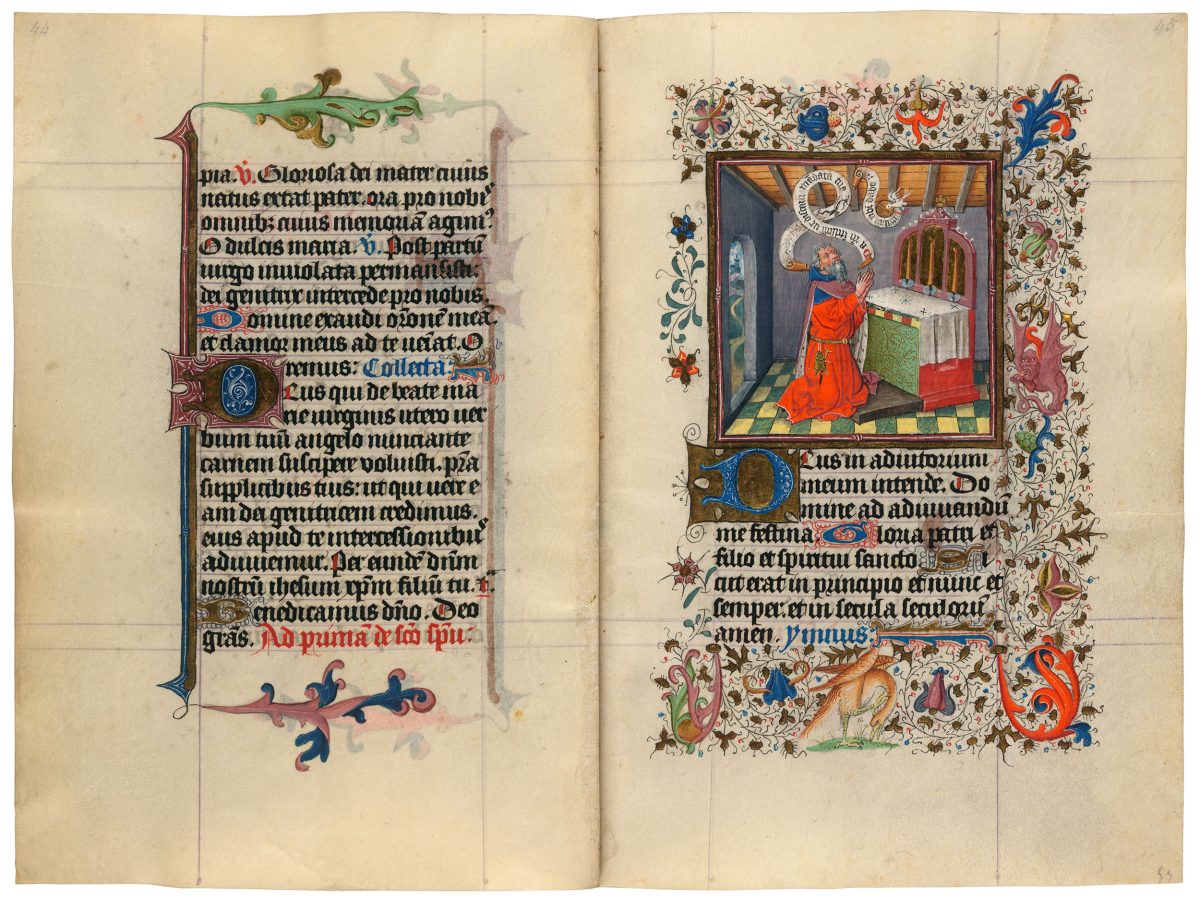 44
pia. v̄. Gloriosa dei mater cuius
natus extat pater. ora pro nobis
omnibꝫ cuius memoriā agimꝰ
O dulcis maria. v̄. Post partū
uirgo inuiolata permansisti:
dei genitrix intercede pro nobis.
Domine exaudi or̄onem meā
et clamor meus ad te ueīat. O
remus: Collecta:
Deus qui de beate ma
rie uirginis utero uer
bum tuū angelo nunciante
carnem suscipere uoluisti. p̄ra
supplicibus tuis: ut qui uere e
am dei genitricem credimus.
eius apud te intercessionibus
adiuuemur. Per eundē dn̄m
nostrū ihesum xp̄m filiū tu. t.
Benedicamus dn̄o. Deo
gr̄as. Ad primā de sc̄o sp̄u:
45
mādata tua
Deus in adiutorium
meum intende. Do
mine ad adiuuandū
me festina Gloria patri et
filio et spiritui sancto Si
cut erat in principio et nunc et
semper. et in secula seculorū
amen. ymnus: